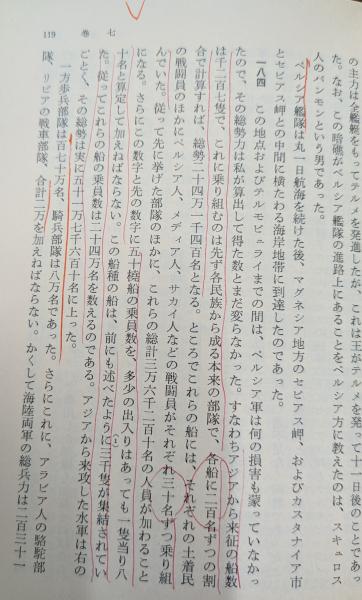 119　巻　七
の主力は全艦艇をもってテルメを発進したが、これは王がテルメを発って十一日後のことであっ
た。なお、この暗礁がペルシア艦隊の進路上にあることをペルシア方に教えたのは、スキュロス
人のパンモンという男であった。
ペルシア艦隊は丸一日航海を続けた後、マグネシア地方のセピアス岬、およびカスタナイア市
とセピアス岬との中間に横たわる海岸地帯に到達したのであった。
一八四　この地点およびテルモピュライまでの間は、ペルシア軍は何の損害も蒙っていなかっ
たので、その総勢力は私が算出して得た数とまだ変らなかった。すなわちアジアから来征の船数
は千二百七隻で、これに乗り組むのは先ず各民族から成る本来の部隊で、各船に二百名ずつの割
合で計算すれば、総勢二十四万一千四百名となる。ところでこれらの船には、それぞれの土着民
の戦闘員のほかにペルシア人、メディア人、サカイ人などの戦闘員がそれぞれ三十名ずつ乗り組
んでいた。従って先に挙げた部隊のほかに、これらの総計三万六千二百十名の人員が加わること
になる。さらにこの数字と先の数字に五十橈船の乗員数を、多少の出入りはあっても一隻当り八
十名と算定して加えねばならない。この船種の船は、前にも述べたように三千隻が集結されてい(1)
た。従ってこれらの船の乗員数は二十四万名を数えるのである。アジアから来攻した水軍は右の
ごとく、その総勢は実に五十一万七千六百十名に上った。
一方歩兵部隊は百七十万名、騎兵部隊は八万名であった。さらにこれに、アラビア人の駱駝部
隊、リビアの戦車部隊、合計二万を加えねばならない。かくして海陸両軍の総兵力は二百三十一